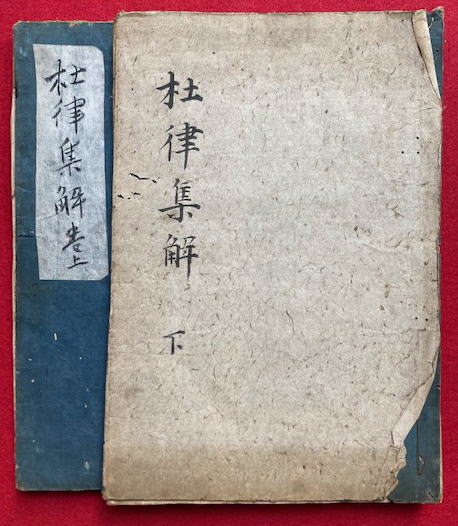 杜律集解 下
杜律集解 巻上